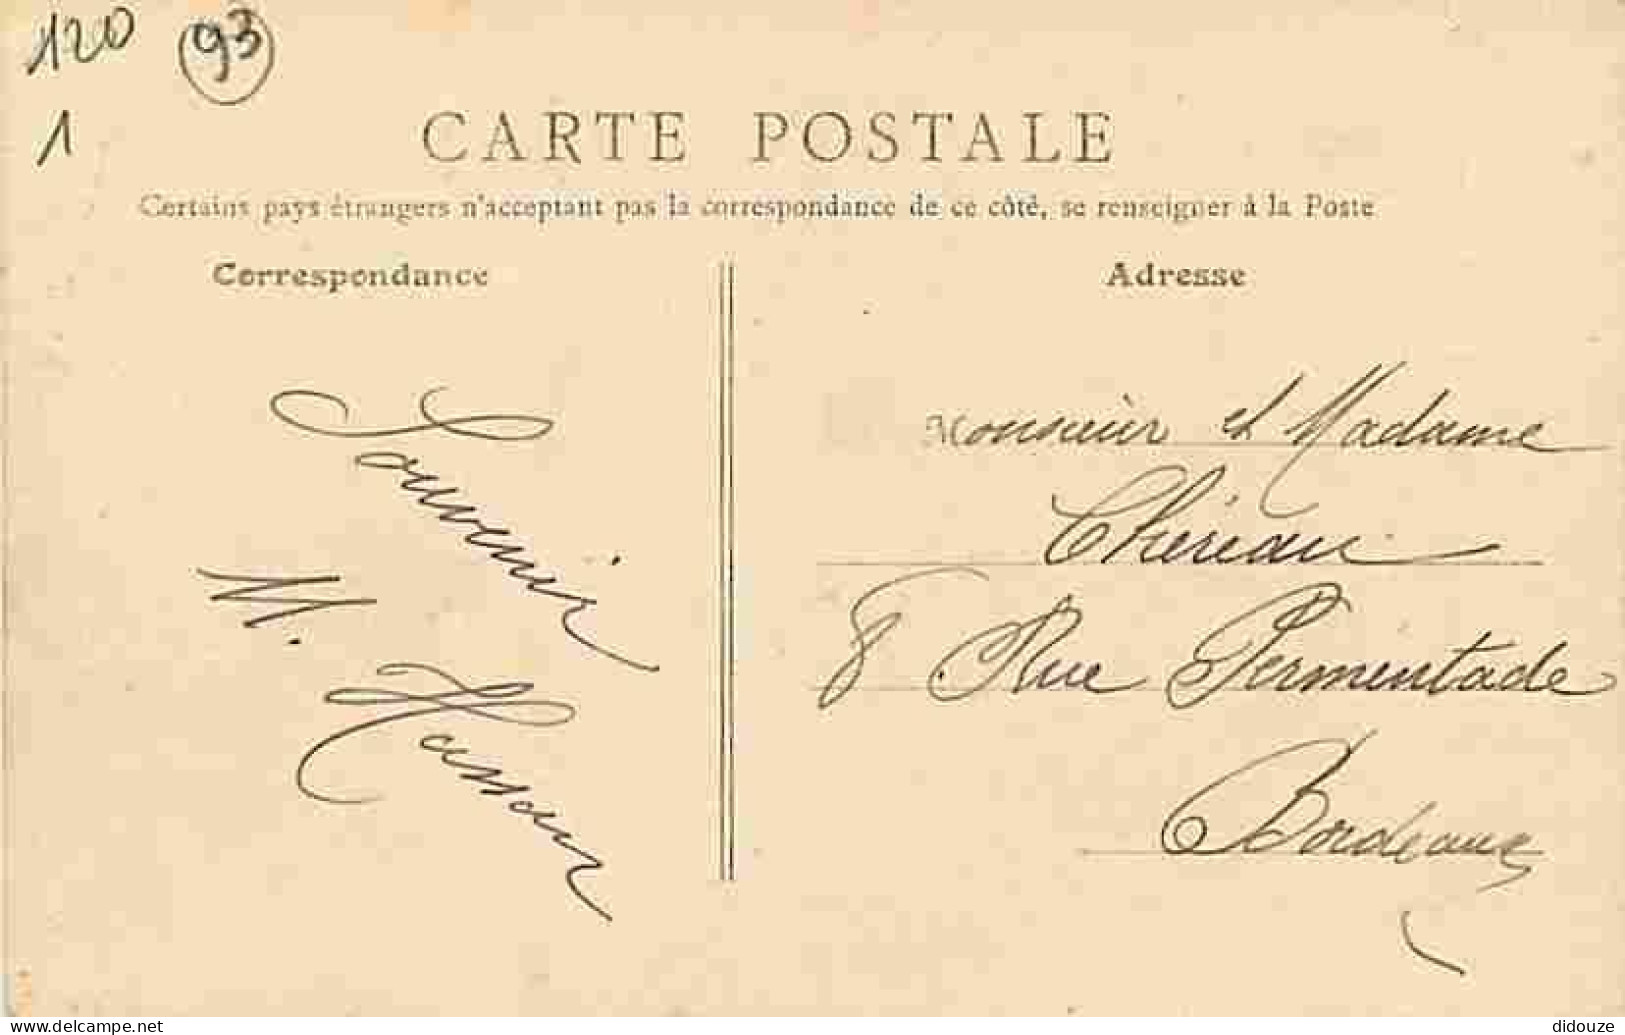 120 93
1
CARTE POSTALE
Certains pays étrangers n'acceptant pas la correspondance de ce côté, se renseigner à la Poste
Correspondance
Souvenir
M.
Adresse
Monsieur et Madame
Chereau
8 Rue Permentade
Bordeaux
www.delcampe.net
didouze